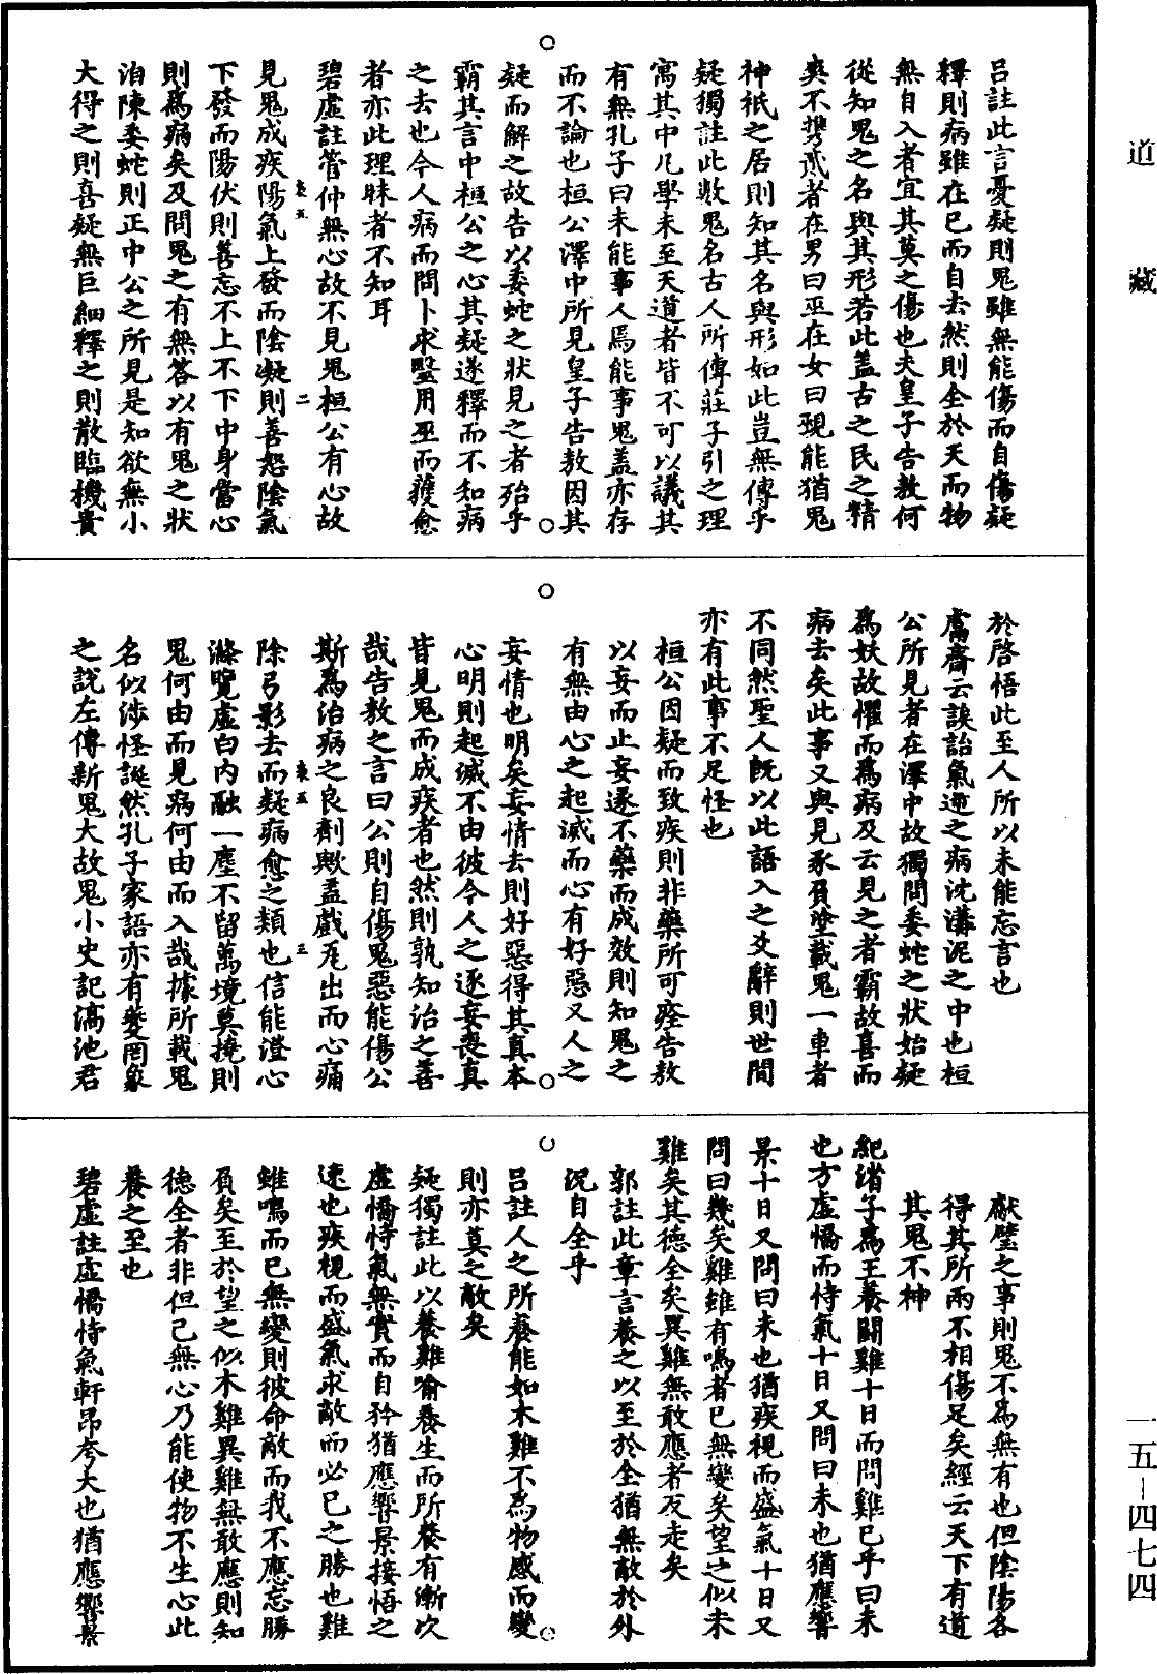 道藏
一五―四七四
呂註此言憂疑則鬼雖無能傷而自傷疑
釋則病雖在己而自去然則全於天而物
無自入者宜其莫之傷也夫皇子告敖何
從知鬼之名與其形若此蓋古之民之精
爽不攜貳者在男曰巫在女曰覡能猶鬼
神祇之居則知其名與形如此豈無傳乎
疑獨註此數鬼名古人所傳莊子引之理
寓其中凡學未至天道者皆不可以議其
有無孔子曰未能事人焉能事鬼蓋亦存
而不論也桓公澤中所見皇子告敖因其
疑而解之故告以委蛇之狀見之者殆乎
霸其言中桓公之心其疑遂釋而不知病
之去也今人病而問卜求毉用巫而獲愈
者亦此理昧者不知耳
碧虛註管仲無心故不見鬼桓公有心故
見鬼成疾陽氣上發而陰凝則善怒陰氣
下發而陽伏則善忘不上不下中身當心
則爲病矣及問鬼之有無答以有鬼之狀
洎陳委蛇則正中公之所見是知欲無小
大得之則喜疑無巨細釋之則散臨機貴
於啓悟此至人所以未能忘言也
鬳齋云誒詒氣逆之病沈溝泥之中也桓
公所見者在澤中故獨問委蛇之狀始疑
爲妖故懼而爲病及云見之者霸故喜而
病去矣此事又與見豕負塗載鬼一車者
不同然聖人既以此語入之爻辭則世間
亦有此事不足怪也
桓公因疑而致疾則非藥所可痊告敖
以妄而止妄遂不藥而成效則知鬼之
有無由心之起滅而心有好惡又人之
妄情也明矣妄情去則好惡得其真本
心明則起滅不由彼今人之逐妄喪真
皆見鬼而成疾者也然則孰知治之善
哉告敖之言曰公則自傷鬼惡能傷公
斯爲治病之良劑歟蓋戲旄出而心痛
除弓影去而疑病愈之類也信能澄心
滌覽虛白內融一塵不留萬境莫撓則
鬼何由而見病何由而入哉據所載鬼
名似涉怪誕然孔子家語亦有夔罔象
之說左傳新鬼大故鬼小史記滈池君
獻璧之事則鬼不爲無有也但陰陽各
得其所兩不相傷足矣經云天下有道
其鬼不神
紀渻子爲王養鬭雞十日而問雞已乎曰未
也方虛憍而恃氣十日又問曰未也猶應響
景十日又問曰未也猶疾視而盛氣十日又
問曰幾矣雞雖有鳴者已無變矣望之似木
雞矣其德全矣異雞無敢應者反走矣
郭註此章言養之以至於全猶無敵於外
況自全乎
呂註人之所養能如木雞不爲物感而變
則亦莫之敵矣
疑獨註此以養雞喻養生而所養有漸次
虛憍恃氣無實而自矜猶應響景接悟之
速也疾視而盛氣求敵而必己之勝也雞
雖鳴而已無變則彼命敵而我不應忘勝
負矣至於望之似木雞異雞無敢應則知
德全者非但己無心乃能使物不生心此
養之至也
碧虛註虛憍恃氣軒昂夸大也猶應響景